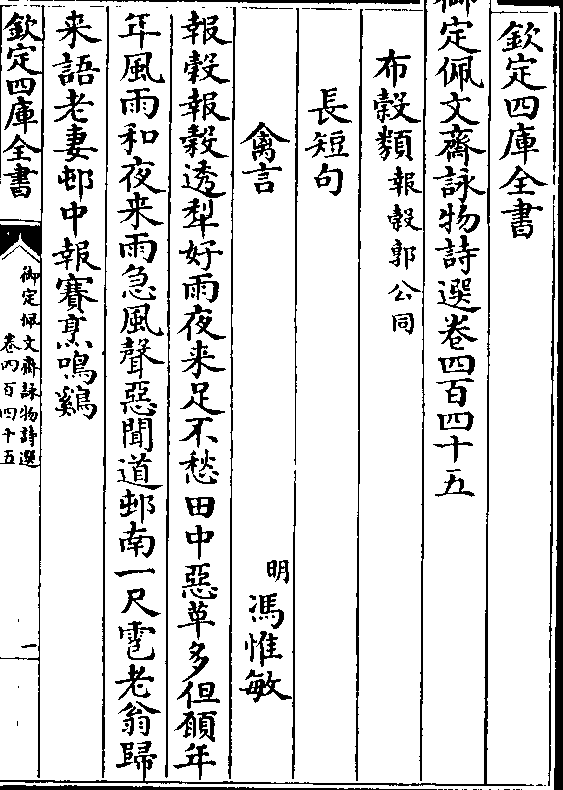 欽定四庫全書
御定佩文齋詠物詩選卷四百四十五
布穀類報穀郭公同
長短句
禽言
明馮惟敏
報穀報穀透犁好雨夜来足不愁田中惡草多但願年
年風雨和夜来雨急風聲惡聞道邨南一尺雹老翁歸
来語老妻邨中報賽烹鳴鷄
欽定四庫全書
御定佩文齋詠物詩選
卷四百四十五
一